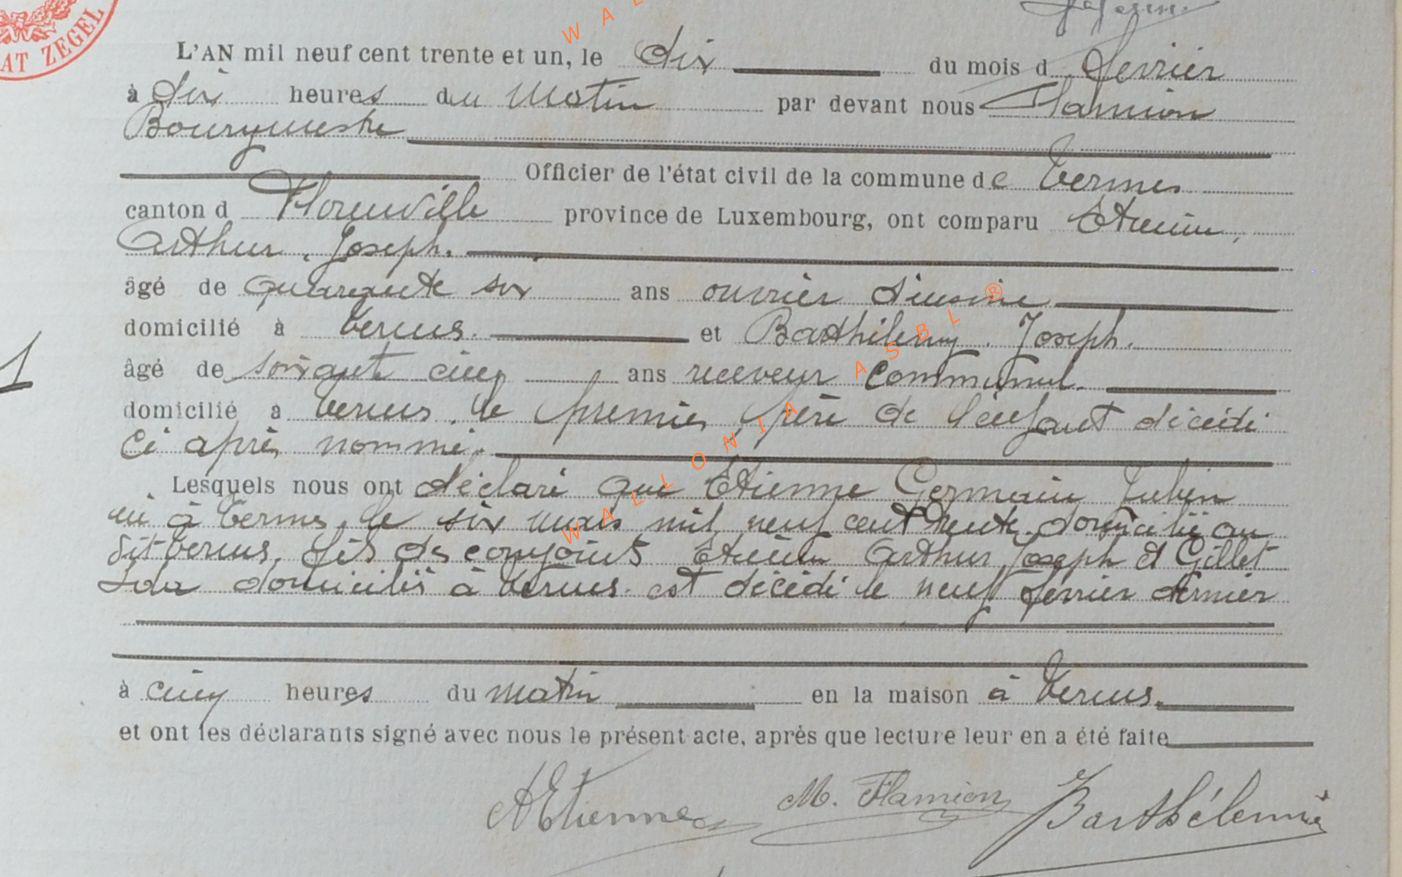 AT ZEGEL
L'AN mil neuf cent trente et un, le dix du mois d février
à dix heures du matin par devant nous Flamion
Bourgmestre
Officier de l'état civil de la commune de Termes
canton d Florenville province de Luxembourg, ont comparu Etienne,
Arthur, Joseph.
âgé de quarante six ans ouvrier d'usine
domicilié à Termes. et Barthélemy. Joseph.
âgé de soixante cinq ans receveur communal.
domicilié a Termes. le premier, père de l'enfant décédé
ci après nommé.
Lesquels nous ont déclaré que Etienne Germain Julien
né à Termes, le six mars mil neuf cent trente, domicilié au
dit Termes, fils des conjoints Etienne Arthur Joseph et Gillet
domiciliés à Termes. est décédé le neuf février dernier
à cinq heures du matin en la maison à Termes.
et ont les déclarants signé avec nous le présent acte, après que lecture leur en a été faite
AEtienne M. Flamion Barthélemy
WALLONIA ASBL ®
WAL